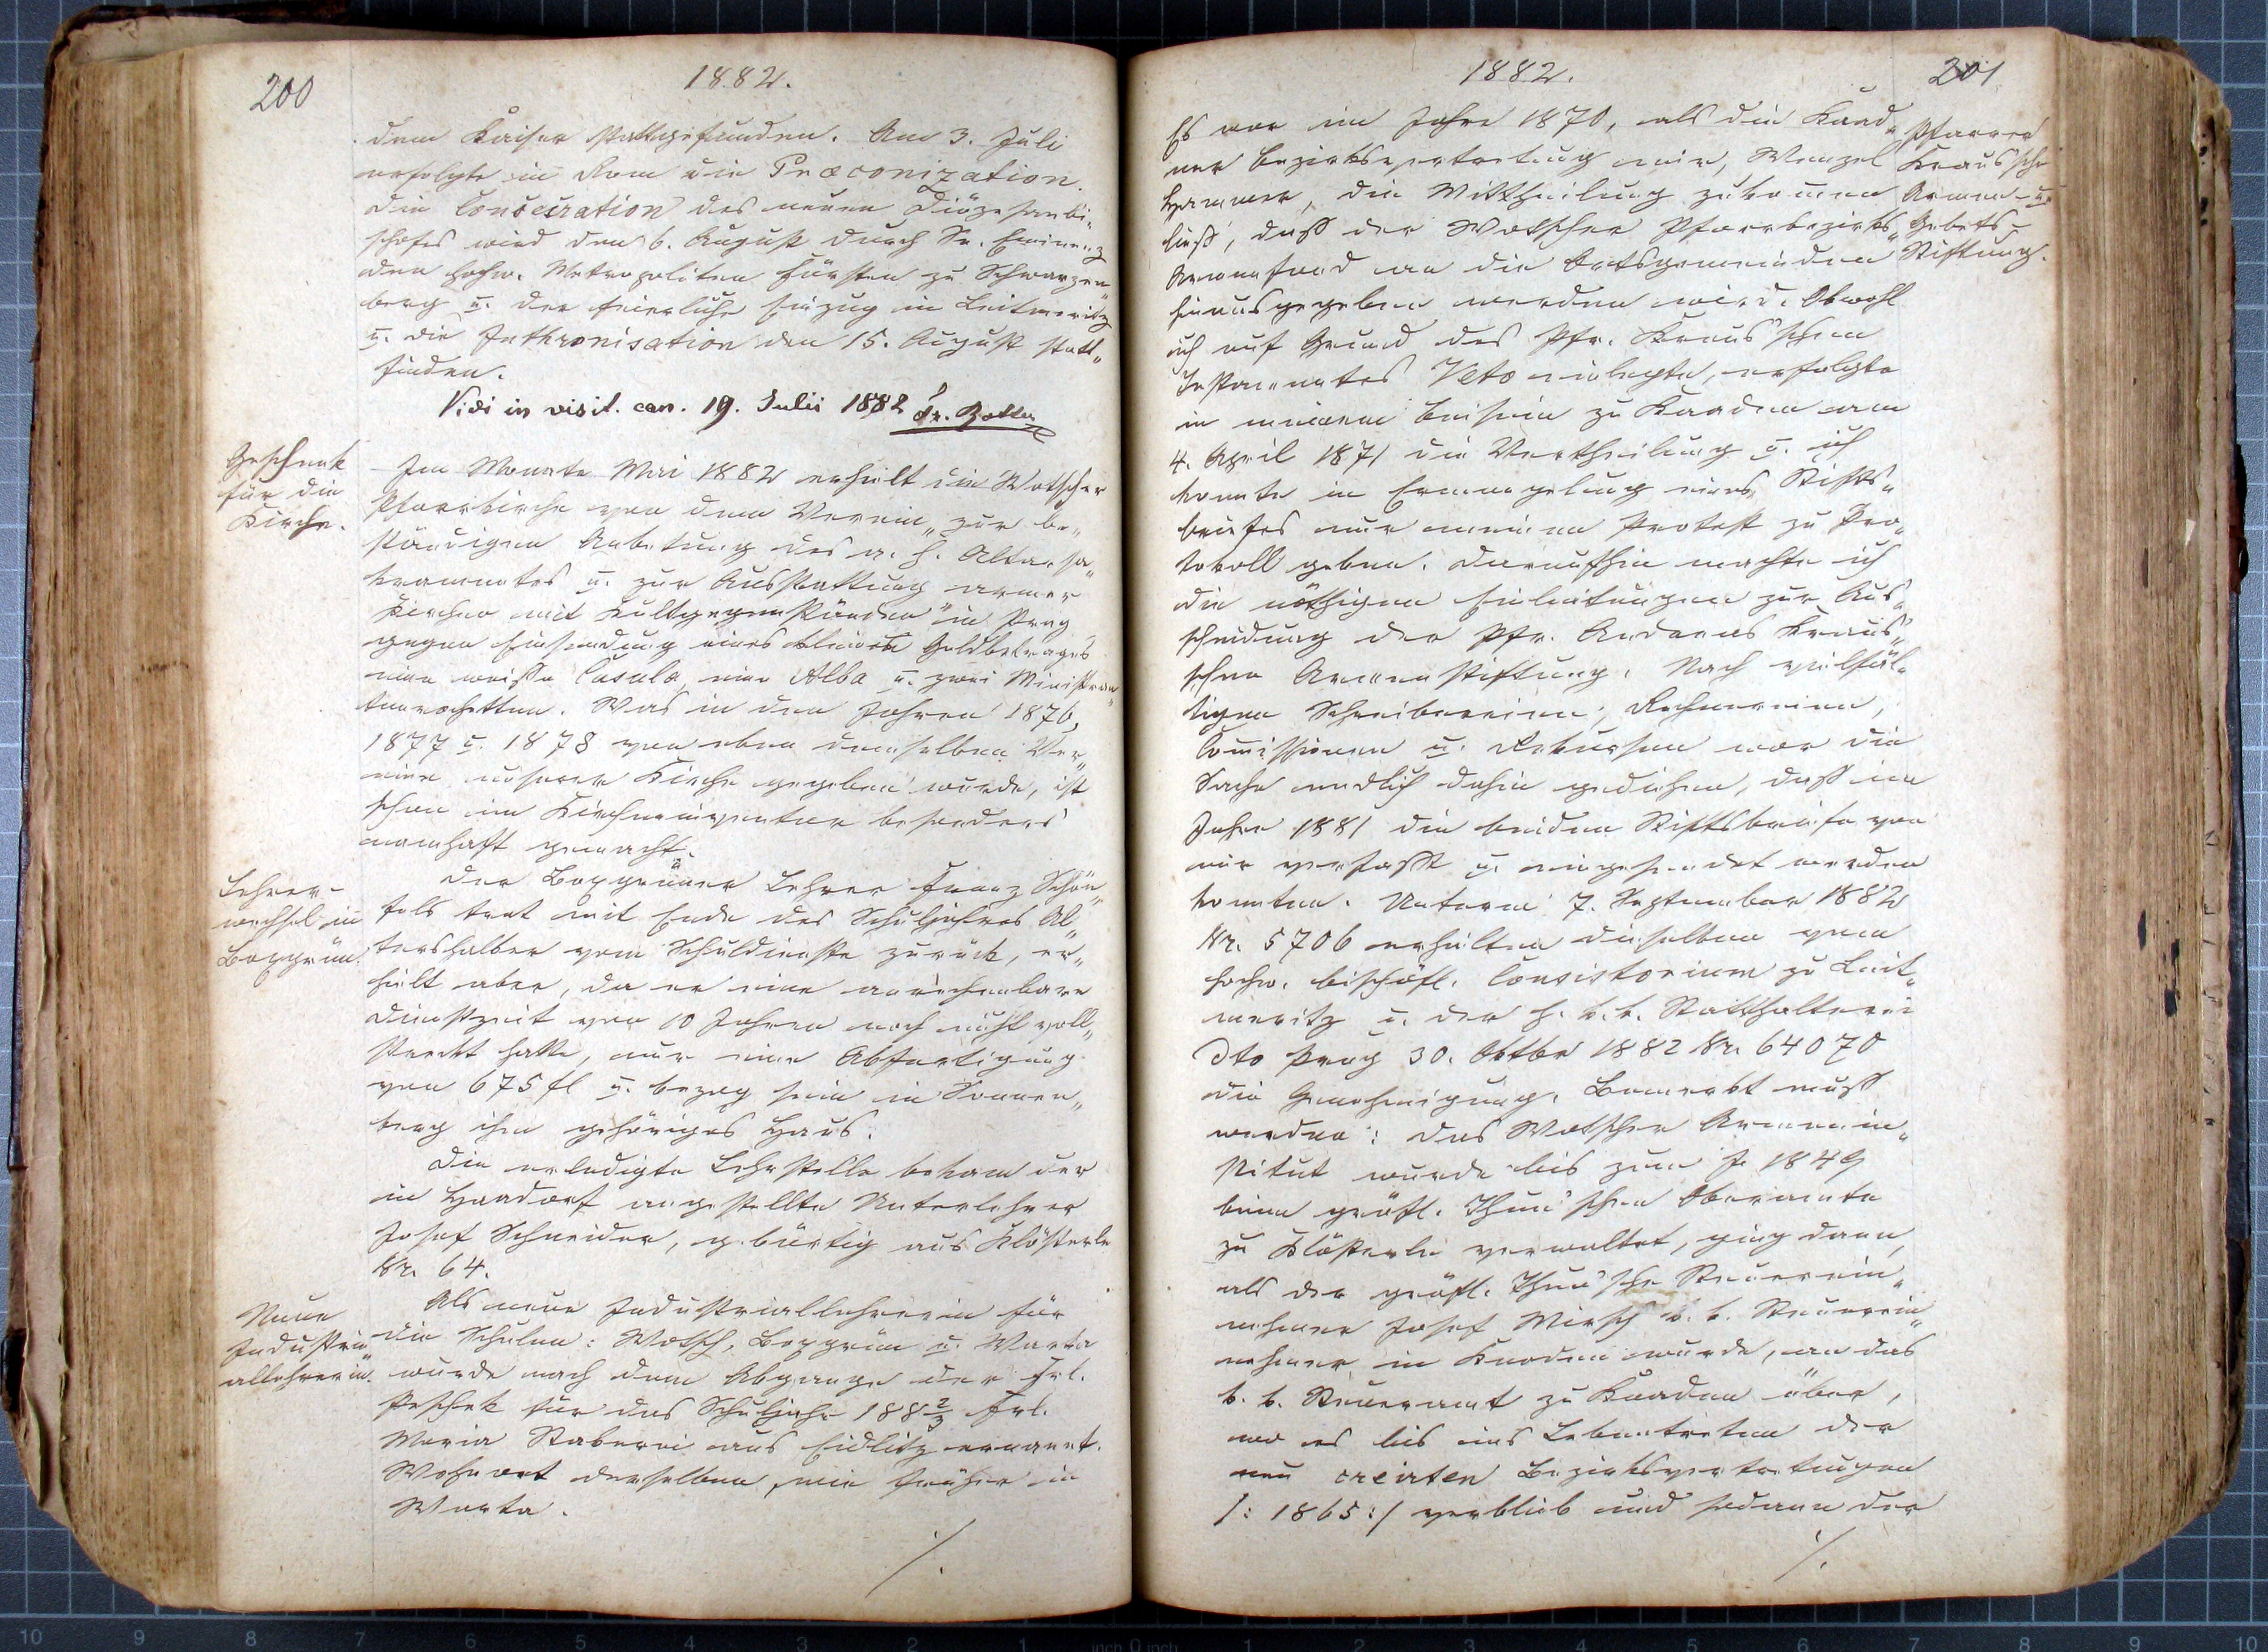 200
1882.
dem Kaiser stattgefunden. Am 3. Juli
erfolgte in Rom die Præconization.
Die Consecration des neuen Diözesanbi„
schofes wird den 6. August durch Se. Eminenz
den hochw. Metropoliten Fürsten zu Schwarzen„
berg u. der feierliche Einzug in Leitmeritz
u. die Inthronisation den 15. August statt„
finden.
Vidi in visit. can. 19. Julii 1882
Geschenk
für die
Kirche.
Im Monate Mai 1882 erhielt die Wotscher
Pfarrkirche von dem Verein „zur be„
ständigen Anbetung des a. h. Altarsa„
kramentes u. zur Ausstattung armer
Kirchen mit Kultgegenständen" in Prag
gegen Einsendung eines kleinen Geldbetrages
eine weisse Casula, eine Alba u. zwei Ministran„
tenrochetten. Was in den Jahren 1876,
1877 u. 1878 von eben demselben Ver„
eine unserer Kirche gegeben wurde, ist
schon im Kircheninventar besonders
namhaft gemacht.
Lehrer-
wechsel in
Boxgrün.
Der Boxgrüner Lehrer Franz Schön„
fels trat mit Ende des Schuljahres Al„
tershalber vom Schuldienste zurück, er„
hielt aber, da er eine anrechenbare
Dienstzeit von 10 Jahren noch nicht voll„
streckt hatte, nur eine Abfertigung
von 675 fl u. bezog sein in Sonnen„
berg ihm gehöriges Haus.
Die erledigte Lehrstelle bekam der
in Haadorf angestellte Unterlehrer
Josef Schneider, gebürtig aus Klösterle
Nr. 64.
Neue
Industri„
allehrerin.
Als neue Industriallehrerin für
die Schulen: Wotsch, Boxgrün u. Warta
wurde nach dem Abgange der Frl.
Peschek für das Schuljahr 188 2/3 Frl.
Maria Staberei aus Eidlitz ernannt.
Wohnort derselben, wie früher in
Warta.
./.
1882.
201
Pfarrer
Kraus'sche
Armen- u.
Gebets-
Stiftung.
Es war im Jahre 1870, als die Kaad„
ner Bezirksvertretung mir, Wenzel
Hammer, die Mittheilung zukommen
ließ, daß der Wotscher Pfarrbezirks„
Armenfond an die Ortsgemeinden
hinausgegeben werden wird. Obwohl
ich auf Grund des Pfr. Kraus'schen
Testamentes Veto einlegte, erfolgte
in meinem Beisein zu Kaaden am
4. April 1871 die Vertheilung u. ich
konnte in Ermangelung eines Stifts„
briefes nur meinen Protest zu Pro„
tokoll geben. Daraufhin machte ich
die nöthigen Einleitungen zur Aus„
scheidung der Pfr. Andreas Kraus'
schen Armenstiftung. Nach vielfäl„
tigen Schreibereien, Rechnereien,
Comissionen u. Rekursen war die
Sache endlich dahin gediehen, daß im
Jahre 1881 die beiden Stiftsbriefe von
mir verfaßt u. eingesendet werden
konnten. Unterm 7. September 1882
Nr. 5706 erhielten dieselben vom
hochw. bischöfl. Consistorium zu Leit„
meritz u. der h. k. k. Statthalterei
dto Prag 30. Oktbr 1882 Nr. 64070
die Genehmigung. Bemerkt muß
werden: das Wotscher Armenin„
stitut wurde bis zum J. 1849
beim gräfl. Thun'schen Oberamte
zu Klösterle verwaltet, ging dann,
als der gräfl. Thun'sche Steuerein„
nehmer Josef Mirsch k. k. Steuerein„
nehmer in Kaaden wurde, an das
k. k. Steueramt zu Kaaden über,
wo es bis ins Lebentreten der
neu creirten Bezirksvertretungen
/: 1865 :/ verblieb und sodann der
./.